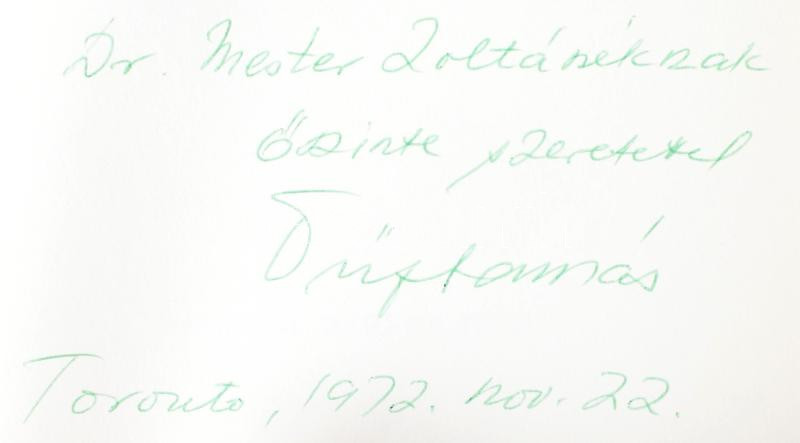 Dr. Mester Zoltánéknak
őszinte szeretettel
Tűz Tamás
Toronto, 1972. nov. 22.